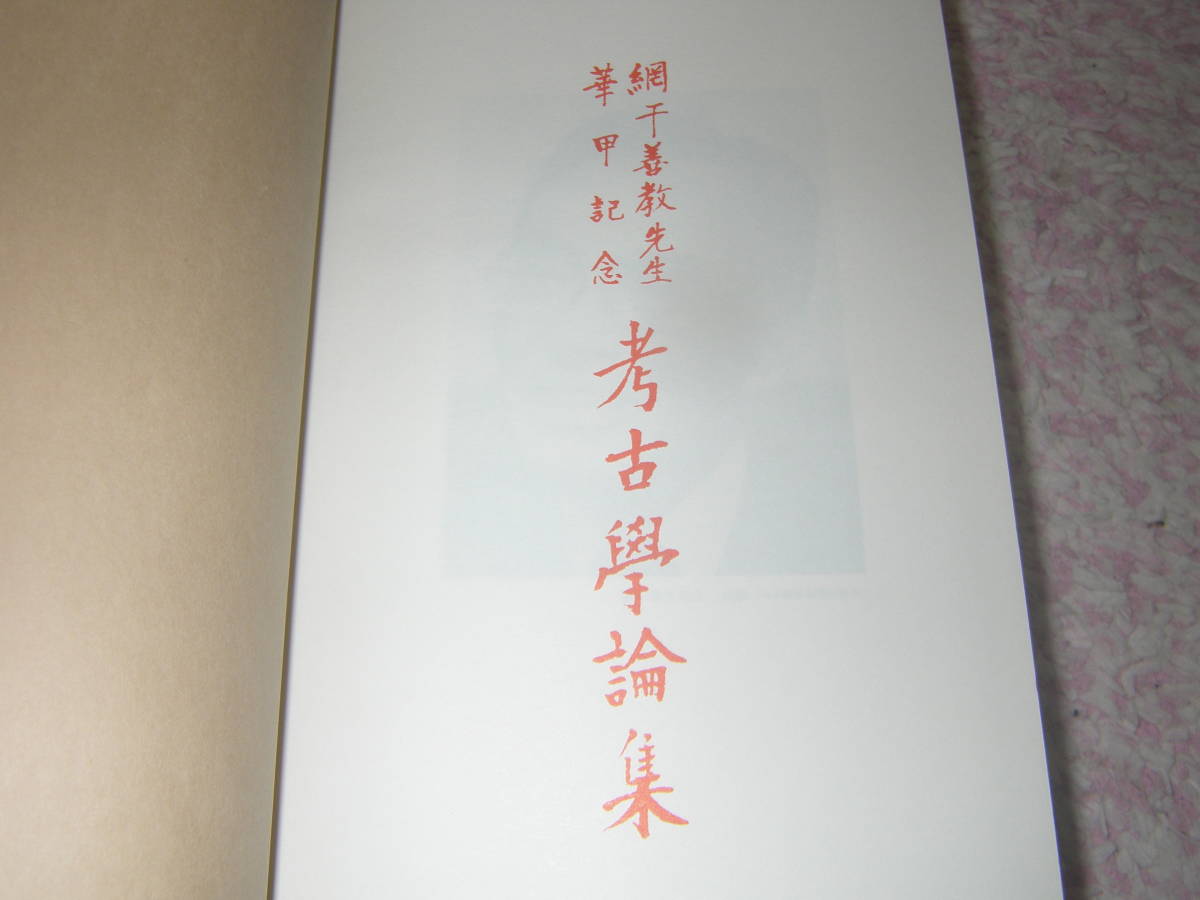 網干善教先生
華甲記念
考古學論集